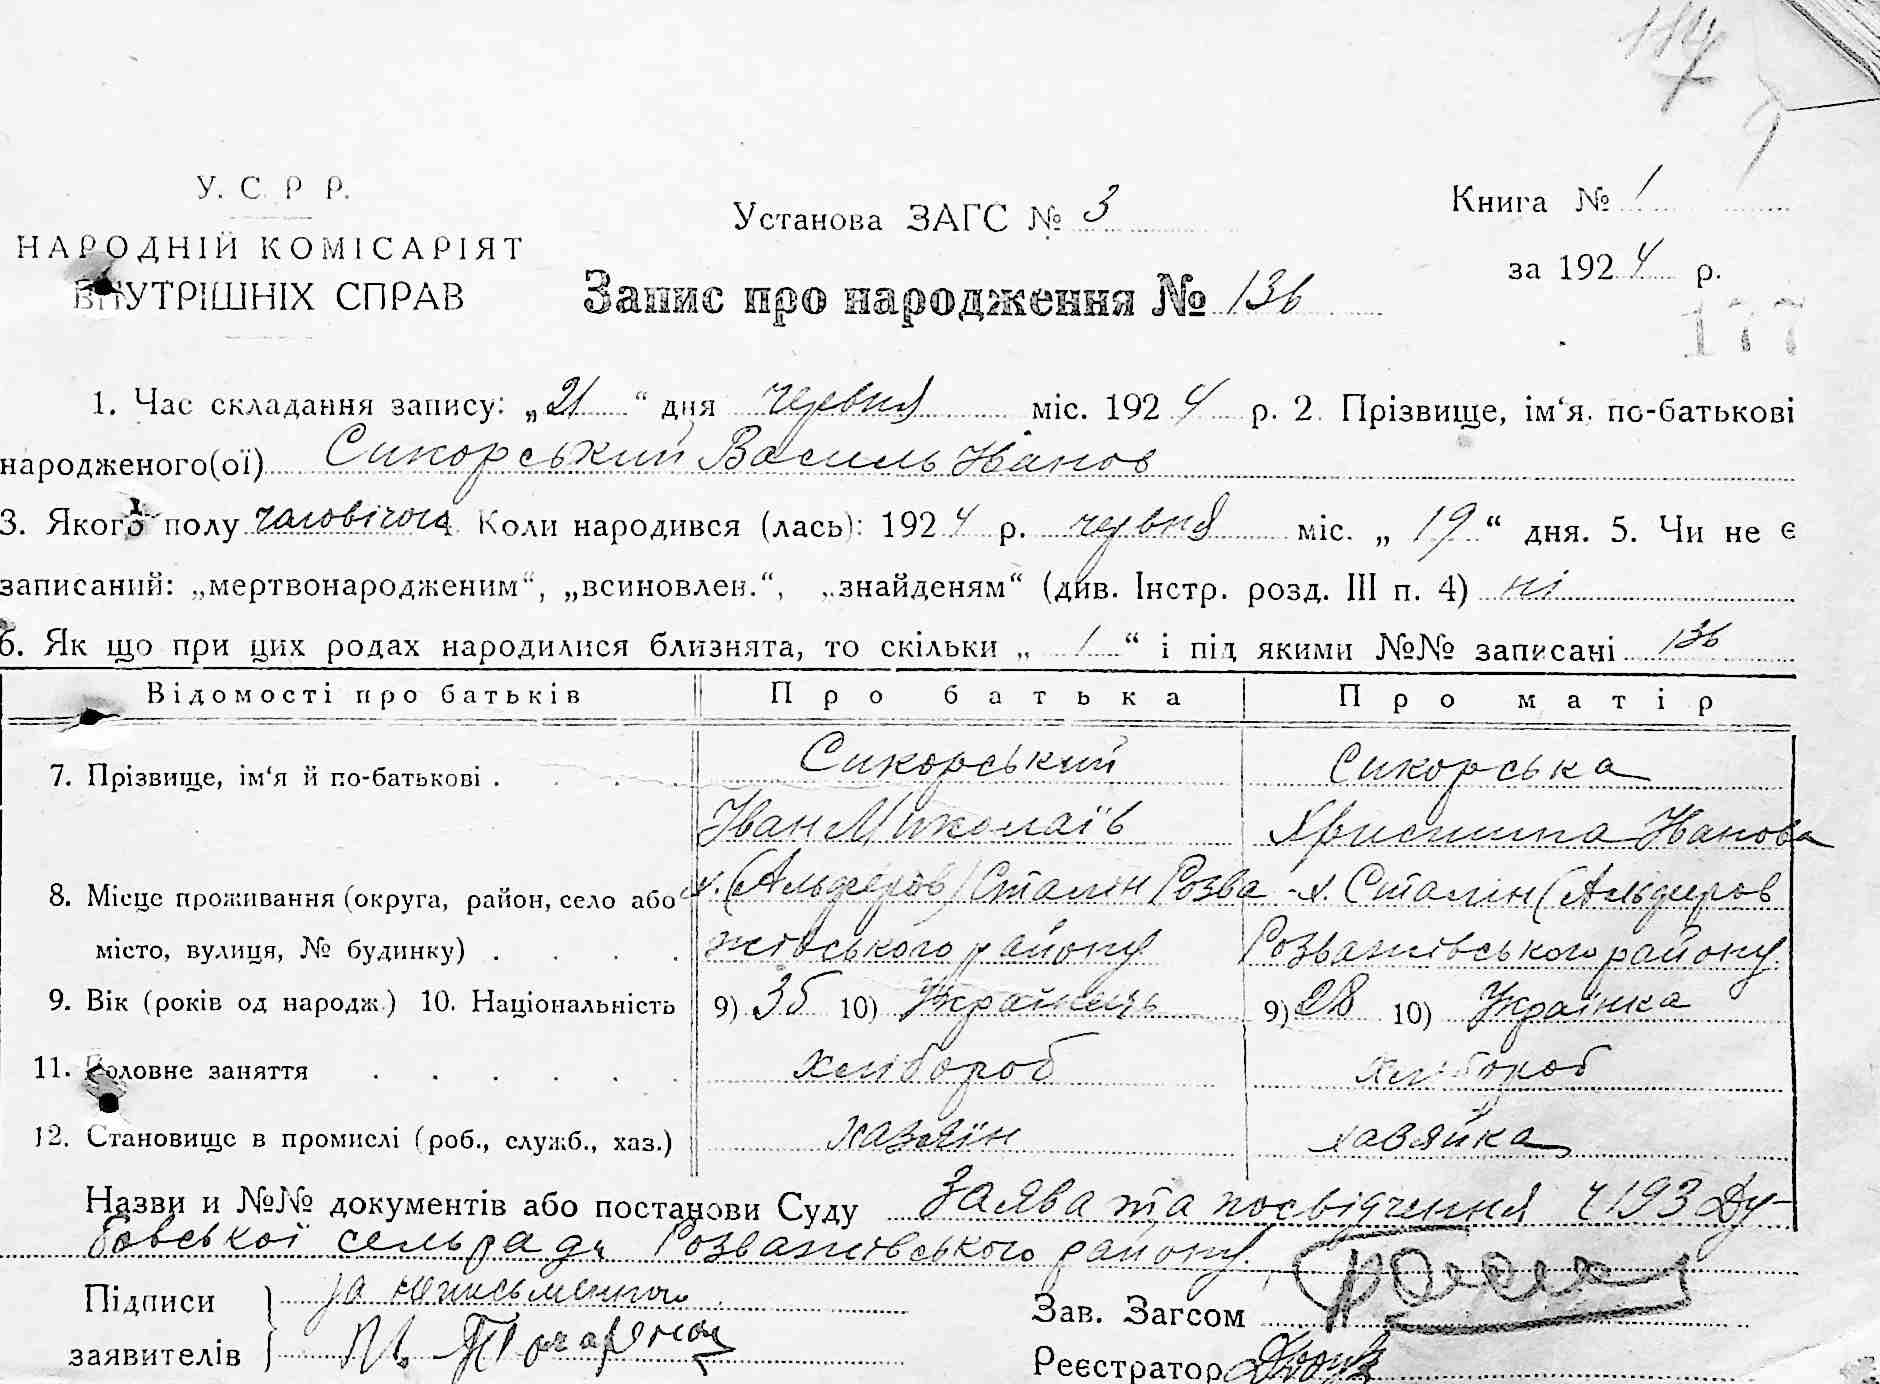 У. С. Р. Р.
НАРОДНІЙ КОМІСАРІЯТ
ВНУТРІШНІХ СПРАВ
Установа ЗАГС № 3
Запис про народження № 136
Книга № 1
за 1924 р.
177
1. Час складання запису: „21“ дня червня міс. 1924 р. 2. Прізвище, ім‘я, по-батькові
народженого(ої) Сикорський Василь Іванов
3. Якого полу чоловічого 4. Коли народився (лась): 1924 р. червня міс. „19“ дня. 5. Чи не є
записаний: „мертвонародженим“, „всиновлен.“, „знайденям“ (див. Інстр. розд. III п. 4) ні
6. Як що при цих родах народилися близнята, то скільки „1“ і під якими №№ записані 136
Відомості про батьків Про батька Про матір
7. Прізвище, ім‘я й по-батькові . . . . Сикорський Сикорська
Іван Миколаїв Христина Іванова
8. Місце проживання (округа, район, село або х. (Альдферов) Сталін Розва- х. Сталін (Альдферов
місто, вулиця, № будинку) . . . . жівського району Розважівського району
9. Вік (років од народж.) 10. Національність 9) 35 10) Українець 9) 28 10) Українка
11. Головне заняття . . . . . . хлібороб хлібороб
12. Становище в промислі (роб., служб., хаз.) хазяїн хазяйка
Назви и №№ документів або постанови Суду Заява та посвідчення ч 193 Ду-
бовської сельради Розважівського району.
Підписи за неписьменного
заявителів
Зав. Загсом
Реєстратор